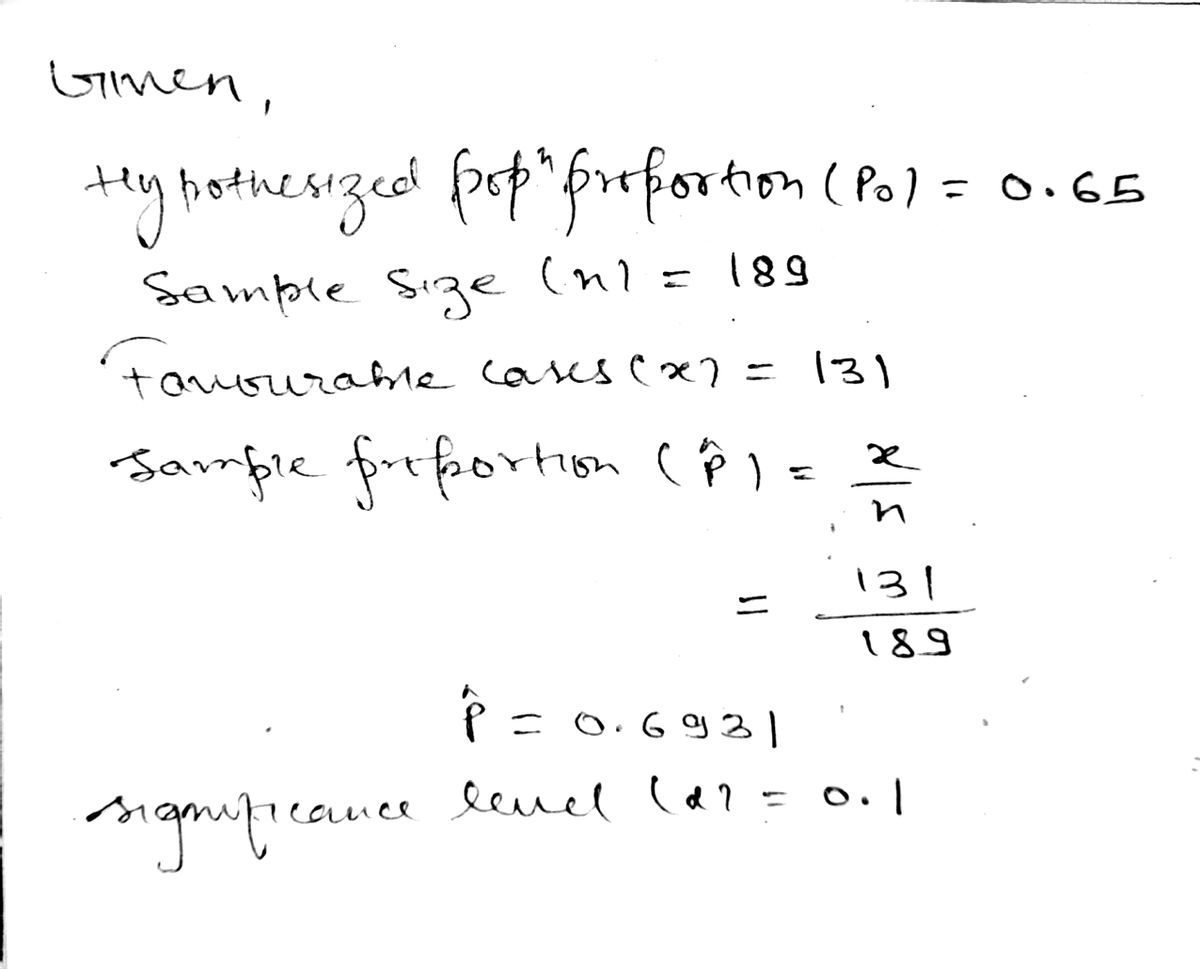 Given,
Hypothesized popⁿ proportion (P₀) = 0.65
Sample size (n) = 189
Favourable cases (x) = 131
Sample proportion (p̂) = x/n
= 131/189
p̂ = 0.6931
significance level (α) = 0.1